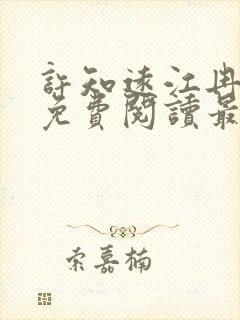 許知遠江冉
免費閱讀最
索嘉楠